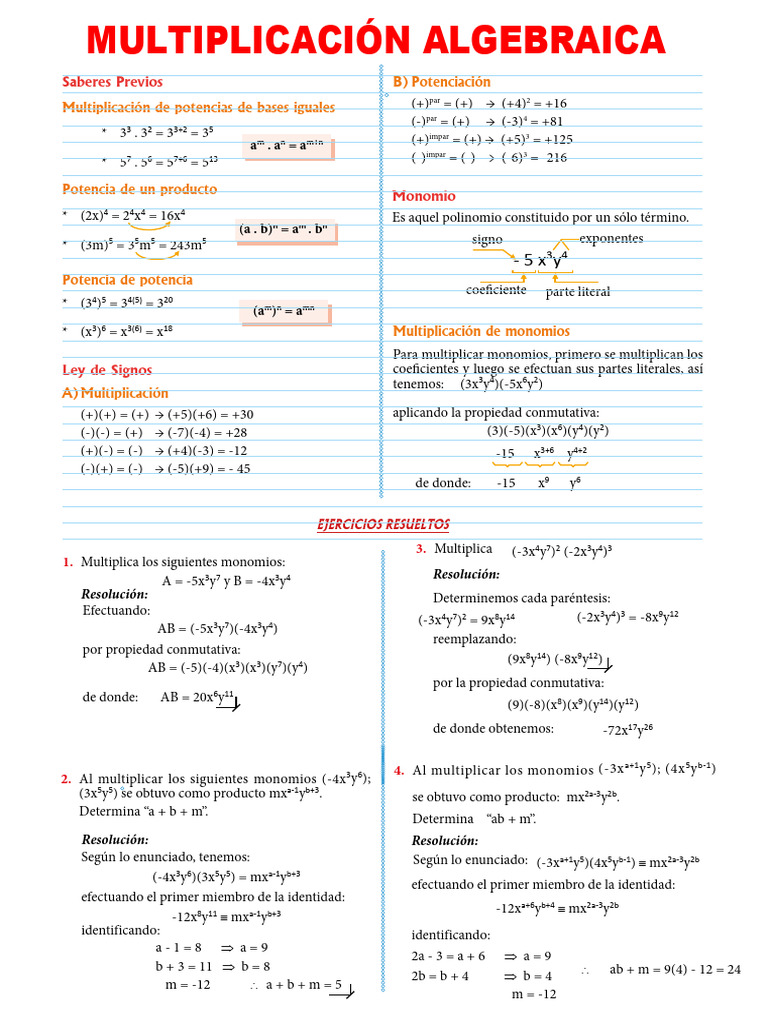 MULTIPLICACIÓN ALGEBRAICA
Saberes Previos
Multiplicación de potencias de bases iguales
* 3³ . 3² = 3³⁺² = 3⁵
aᵐ . aⁿ = aᵐ⁺ⁿ
* 5⁷ . 5⁶ = 5⁷⁺⁶ = 5¹³
Potencia de un producto
* (2x)⁴ = 2⁴x⁴ = 16x⁴
(a . b)ⁿ = aᵐ . bⁿ
* (3m)⁵ = 3⁵m⁵ = 243m⁵
Potencia de potencia
* (3⁴)⁵ = 3⁴⁽⁵⁾ = 3²⁰
(aᵐ)ⁿ = aᵐⁿ
* (x³)⁶ = x³⁽⁶⁾ = x¹⁸
Ley de Signos
A) Multiplicación
(+)(+) = (+) → (+5)(+6) = +30
(-)(-) = (+) → (-7)(-4) = +28
(+)(-) = (-) → (+4)(-3) = -12
(-)(+) = (-) → (-5)(+9) = - 45
B) Potenciación
(+)ᵖᵃʳ = (+) → (+4)² = +16
(-)ᵖᵃʳ = (+) → (-3)⁴ = +81
(+)ⁱᵐᵖᵃʳ = (+) → (+5)³ = +125
( )ⁱᵐᵖᵃʳ = ( ) → ( 6)³ = 216
Monomio
Es aquel polinomio constituido por un sólo término.
signo exponentes
- 5 x³y⁴
coeficiente parte literal
Multiplicación de monomios
Para multiplicar monomios, primero se multiplican los
coeficientes y luego se efectuan sus partes literales, así
tenemos: (3x³y⁴)(-5x⁶y²)
aplicando la propiedad conmutativa:
(3)(-5)(x³)(x⁶)(y⁴)(y²)
-15 x³⁺⁶ y⁴⁺²
de donde: -15 x⁹ y⁶
EJERCICIOS RESUELTOS
1. Multiplica los siguientes monomios:
A = -5x³y⁷ y B = -4x³y⁴
Resolución:
Efectuando:
AB = (-5x³y⁷)(-4x³y⁴)
por propiedad conmutativa:
AB = (-5)(-4)(x³)(x³)(y⁷)(y⁴)
de donde: AB = 20x⁶y¹¹
2. Al multiplicar los siguientes monomios (-4x³y⁶);
(3x⁵y⁵) se obtuvo como producto mxᵃ⁻¹yᵇ⁺³.
Determina “a + b + m”.
Resolución:
Según lo enunciado, tenemos:
(-4x³y⁶)(3x⁵y⁵) = mxᵃ⁻¹yᵇ⁺³
efectuando el primer miembro de la identidad:
-12x⁸y¹¹ ≡ mxᵃ⁻¹yᵇ⁺³
identificando:
a - 1 = 8 ⇒ a = 9
b + 3 = 11 ⇒ b = 8
m = -12 ∴ a + b + m = 5
3. Multiplica (-3x⁴y⁷)² (-2x³y⁴)³
Resolución:
Determinemos cada paréntesis:
(-3x⁴y⁷)² = 9x⁸y¹⁴ (-2x³y⁴)³ = -8x⁹y¹²
reemplazando:
(9x⁸y¹⁴) (-8x⁹y¹²)
por la propiedad conmutativa:
(9)(-8)(x⁸)(x⁹)(y¹⁴)(y¹²)
de donde obtenemos: -72x¹⁷y²⁶
4. Al multiplicar los monomios (-3xᵃ⁺¹y⁵); (4x⁵yᵇ⁻¹)
se obtuvo como producto: mx²ᵃ⁻³y²ᵇ.
Determina “ab + m”.
Resolución:
Según lo enunciado: (-3xᵃ⁺¹y⁵)(4x⁵yᵇ⁻¹) ≡ mx²ᵃ⁻³y²ᵇ
efectuando el primer miembro de la identidad:
-12xᵃ⁺⁶yᵇ⁺⁴ ≡ mx²ᵃ⁻³y²ᵇ
identificando:
2a - 3 = a + 6 ⇒ a = 9
2b = b + 4 ⇒ b = 4 ∴ ab + m = 9(4) - 12 = 24
m = -12